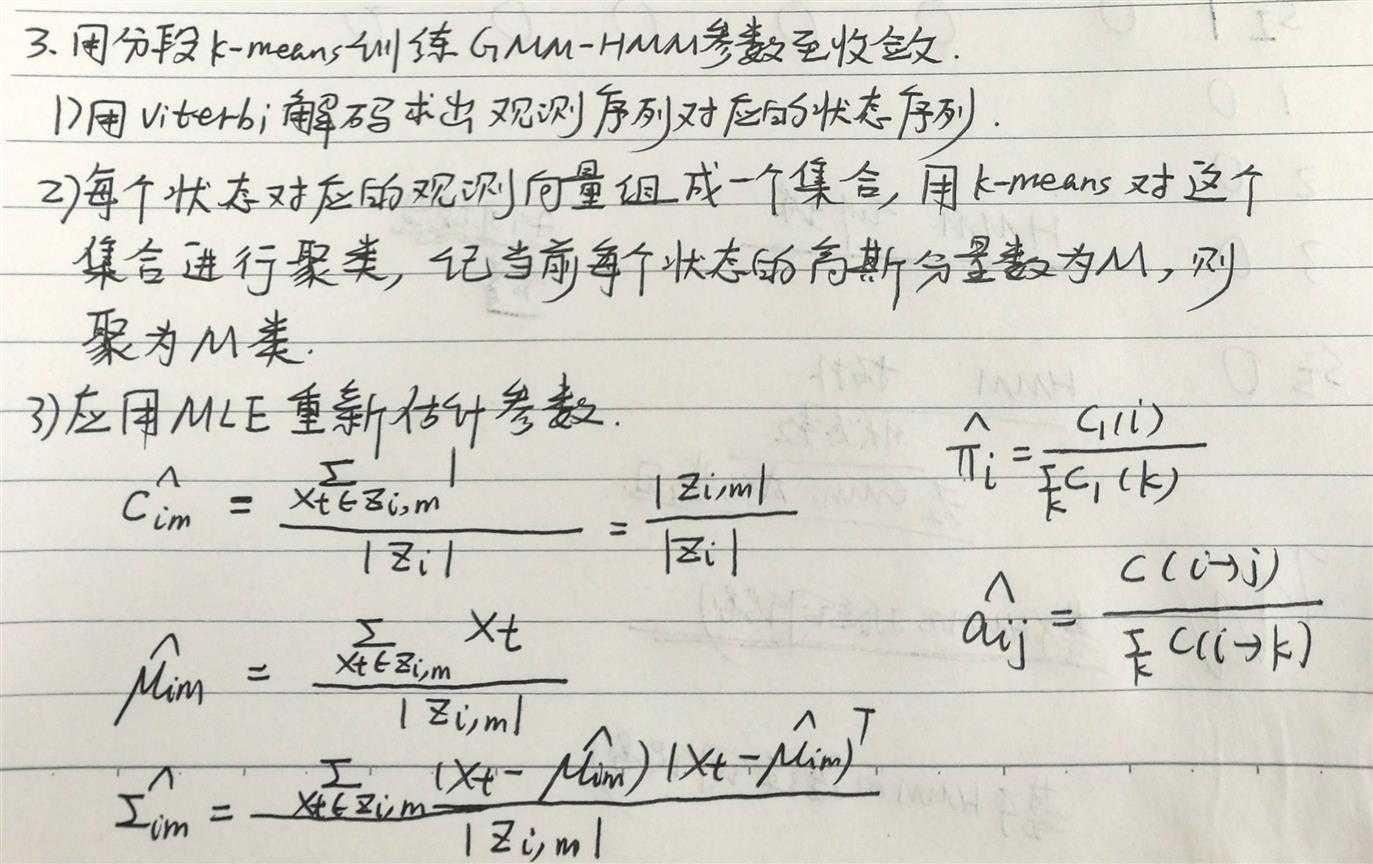 3. 用分段k-means训练GMM-HMM参数至收敛.
1)用Viterbi解码求出观测序列对应的状态序列.
2)每个状态对应的观测向量组成一个集合, 用k-means对这个
集合进行聚类, 记当前每个状态的高斯分量数为M, 则
聚为M类.
3)应用MLE重新估计参数.
\hat{C_{im}} = \frac{\sum_{X_t \in Z_{i,m}} 1}{|Z_i|} = \frac{|Z_{i,m}|}{|Z_i|}
\hat{\pi_i} = \frac{C_1(i)}{\sum_k C_1(k)}
\hat{\mu_{im}} = \frac{\sum_{X_t \in Z_{i,m}} X_t}{|Z_{i,m}|}
\hat{a_{ij}} = \frac{C(i→j)}{\sum_k C(i→k)}
\hat{\Sigma_{im}} = \frac{\sum_{X_t \in Z_{i,m}} (X_t - \hat{\mu_{im}})(X_t - \hat{\mu_{im}})^T}{|Z_{i,m}|}